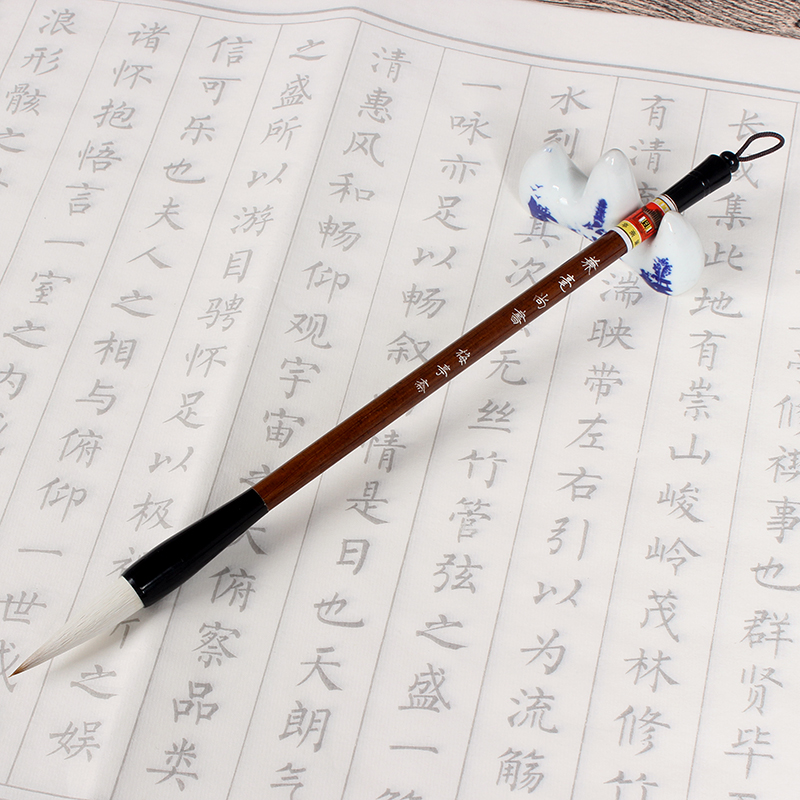 修禊事也群贤毕
长咸集此地有崇山峻岭茂林修竹
有清 湍映带左右引以为流觞
水列 其次 无丝竹管弦之盛一
一咏亦足以畅叙 情是日也天朗气
清惠风和畅仰观宇宙之大俯察品类
之盛所以游目骋怀足以极 之娱
信可乐也夫人之相与俯仰一世或
诸怀抱悟言一室之内
浪形骸之
兼毫尚